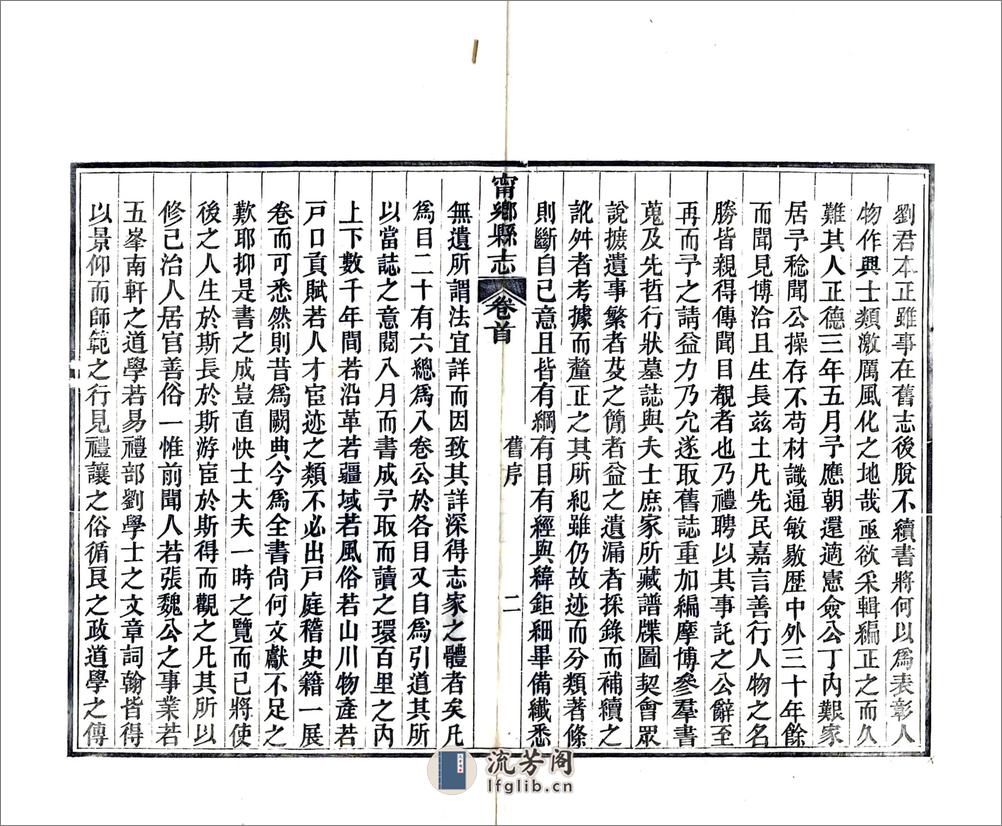 劉君本正雖事在舊志後脫不續書將何以爲表彰人
物作興士類激厲風化之地哉亟欲采輯編正之而久
難其人正德三年五月予應朝還適憲僉公丁內艱家
居予稔聞公操存不苟材識通敏敭歷中外三十年餘
而聞見博洽且生長茲土凡先民嘉言善行人物之名
勝皆親得傳聞目覩者也乃禮聘以其事託之公辭至
再而予之請益力乃允遂取舊誌重加編摩博參羣書
蒐及先哲行狀墓誌與夫士庶家所藏譜牒圖契會眾
說摭遺事繁者芟之簡者益之遺漏者採錄而補續之
訛舛者考據而釐正之其所紀雖仍故迹而分類著條
則斷自己意且皆有綱有目有經與緯鉅細畢備纖悉
甯鄉縣志 卷首 舊序 二
無遺所謂法宜詳而因致其詳深得志家之體者矣凡
爲目二十有六總爲八卷公於各目又自爲引道其所
以當誌之意閱八月而書成予取而讀之環百里之內
上下數千年間若沿革若疆域若風俗若山川物產若
戸口貢賦若人才宦迹之類不必出戸庭稽史籍一展
卷而可悉然則昔爲闕典今爲全書尙何文獻不足之
歎耶抑是書之成豈直快士大夫一時之覽而已將使
後之人生於斯長於斯游宦於斯得而觀之凡其所以
修己治人居官善俗一惟前聞人若張魏公之事業若
五峯南軒之道學若易禮部劉學士之文章詞翰皆得
以景仰而師範之行見禮讓之俗循良之政道學之傳
流芳阁
lfglib.cn